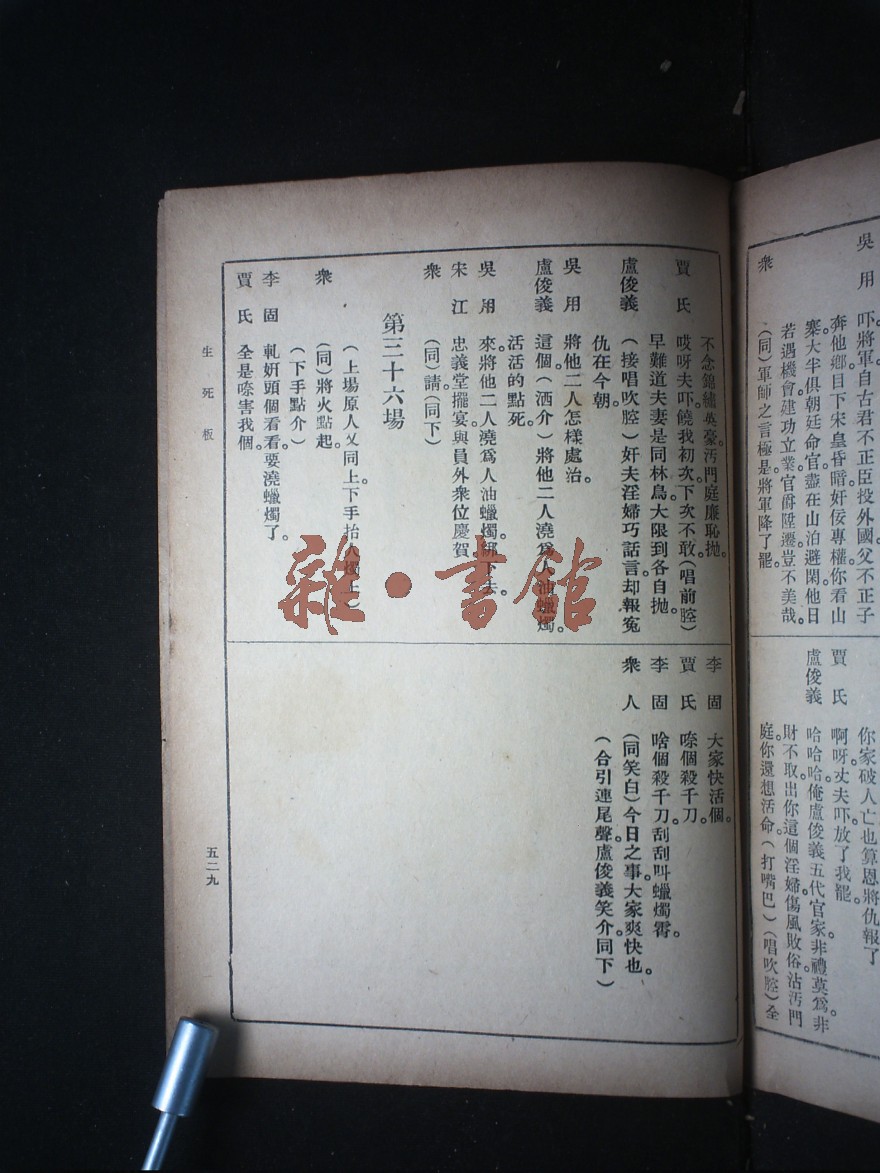 吳用 吓將軍自古君不正臣投外國父不正子
奔他鄉目下宋皇昏暗奸佞專權你看山
寨大半俱朝廷命官盡在山泊避閑他日
若遇機會建功立業官爵陞遷豈不美哉。
衆 (同)軍師之言極是將軍降了罷。
你家破人亡也算恩將仇報了
賈氏 啊呀丈夫吓放了我罷。
盧俊義 哈哈哈俺盧俊義五代官家非禮莫爲非
財不取出你這個淫婦傷風敗俗沾汚門
庭你還想活命(打嘴巴)(唱吹腔)全
不念錦繡英豪汚門庭廉恥抛。
賈氏 哎呀夫吓饒我初次下次不敢(唱前腔)
早難道夫妻是同林鳥大限到各自抛。
盧俊義 (接唱吹腔)奸夫淫婦巧話言却報寃
仇在今朝。
吳用 將他二人怎樣處治。
盧俊義 這個(洒介)將他二人澆爲人油蠟燭。
活活的點死。
吳用 來將他二人澆爲人油蠟燭。綁下去。
宋江 忠義堂擺宴與員外衆位慶賀。
衆 (同)請(同下)
第三十六場
(上場原人乂同上下手抬人燭上)
衆 (同)將火點起。
(下手點介)
李固 軋姸頭個看看要澆蠟燭了。
賈氏 全是㑚害我個。
李固 大家快活個。
賈氏 㑚個殺千刀。
李固 啥個殺千刀刮刮叫蠟燭霄。
衆人 (同笑白)今日之事大家爽快也。
(合引連尾聲。盧俊義笑介同下)
生死板
五二九
雜·書館